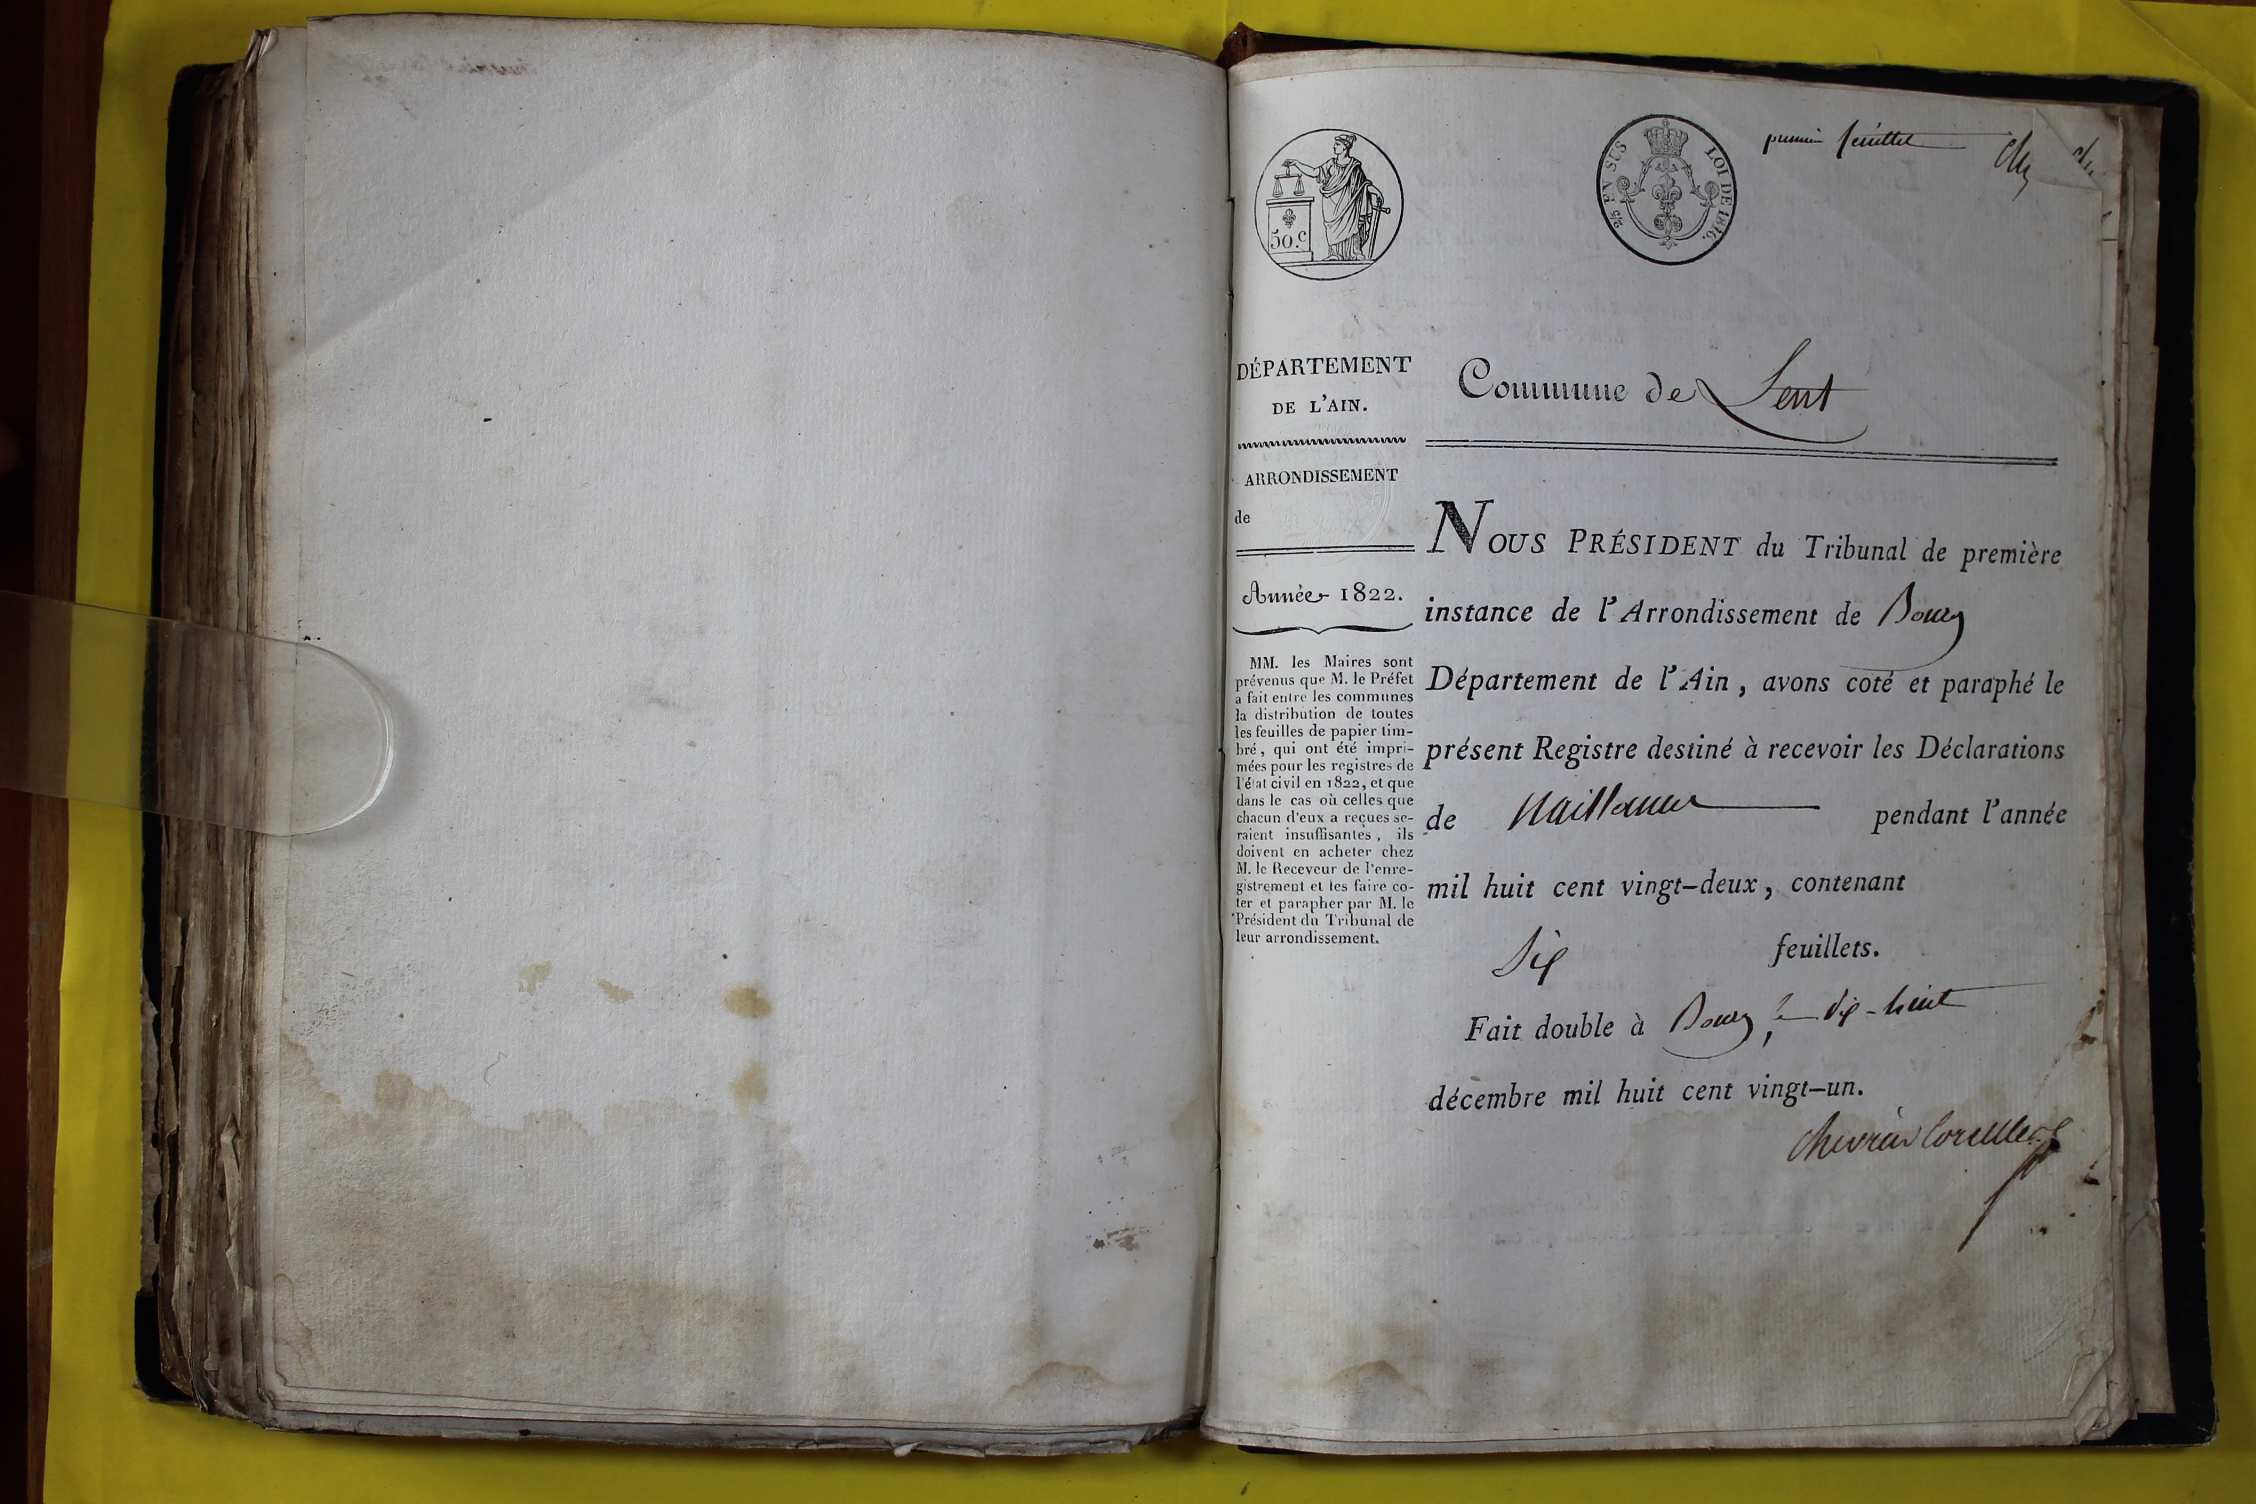 premier feuillet
50.c
2/5 EN SUS
LOI DE 1816.
DÉPARTEMENT
DE L'AIN.
ARRONDISSEMENT
de
Année 1822.
MM. les Maires sont
prévenus que M. le Préfet
a fait entre les communes
la distribution de toutes
les feuilles de papier tim-
bré, qui ont été impri-
mées pour les registres de
l'état civil en 1822, et que
dans le cas où celles que
chacun d'eux a reçues se-
raient insuffisantes, ils
doivent en acheter chez
M. le Receveur de l'enre-
gistrement et les faire co-
ter et parapher par M. le
Président du Tribunal de
leur arrondissement.
Commune de Lent
NOUS PRÉSIDENT du Tribunal de première
instance de l'Arrondissement de Bourg
Département de l'Ain, avons coté et paraphé le
présent Registre destiné à recevoir les Déclarations
de Naissances pendant l'année
mil huit cent vingt-deux, contenant
Six feuillets.
Fait double à Bourg, le dix-huit
décembre mil huit cent vingt-un.